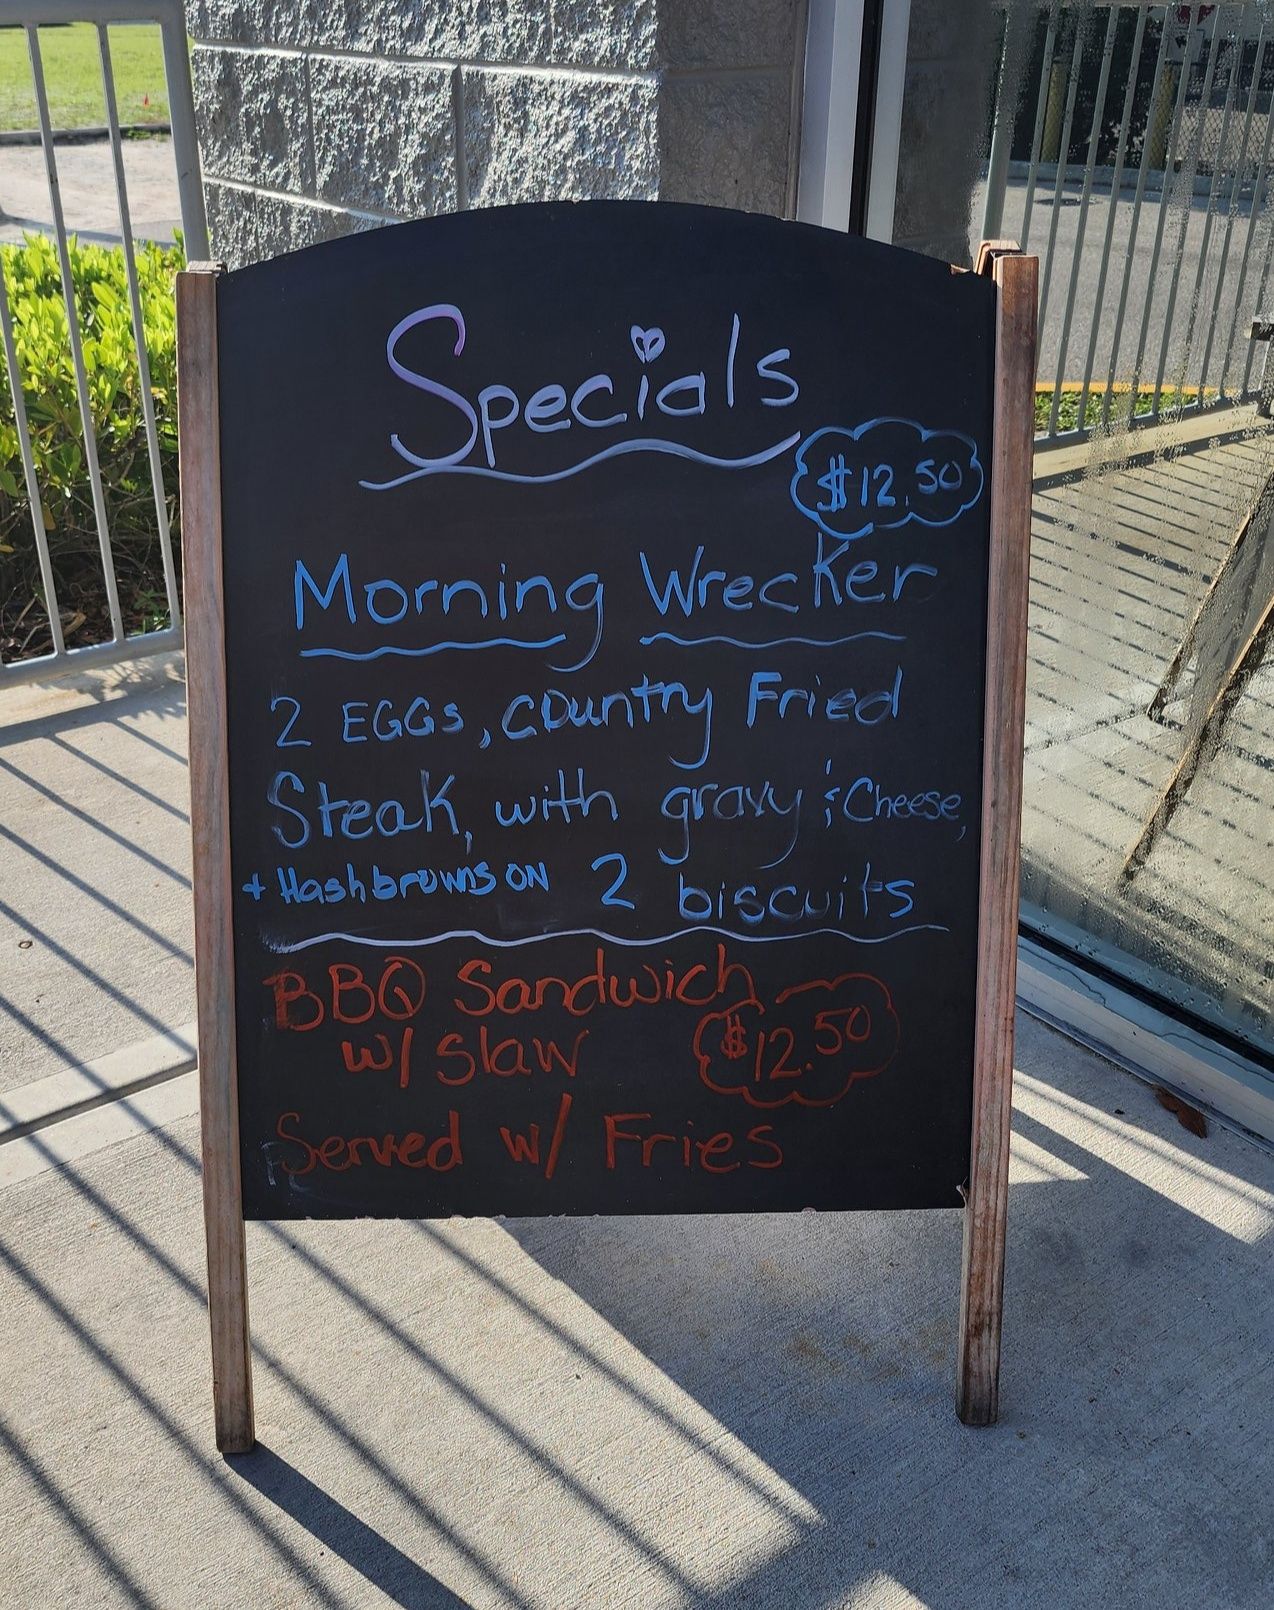 Specials
$12.50
Morning Wrecker
2 EGGs, country Fried
Steak, with gravy & Cheese,
+ Hashbrowns ON 2 biscuits
BBQ Sandwich
w/ slaw $12.50
Served w/ Fries